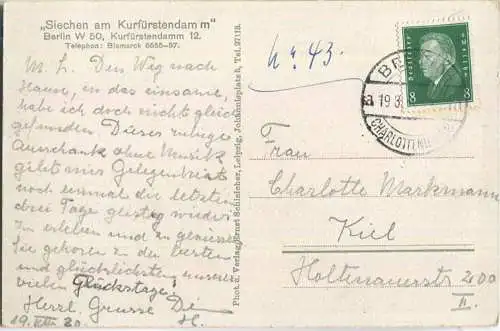 „Siechen am Kurfürstendamm"
Berlin W 50, Kurfürstendamm 12.
Telephon: Bismarck 6655-57.
No 43.
M. L. Den Weg nach
Hause, in das einsame
habe ich doch nicht gleich
gefunden. Dieser ruhige
Ausschank ohne Musik
gibt mir Gelegenheit
noch einmal die letzten
drei Tage geistig wieder
zu erleben und zu geniessen
Sie gehören zu den besten
und glücklichsten unserer
vielen Glückstage!
Herzl. Grüsse Dein
H.
19. VIII 30.
Phot. u. Verlag Ernst Schleicher, Leipzig, Johannisplatz 5, Tel. 27118.
Deutsches Reich
8 8
BE
19.8.
CHARLOTTENBURG
Frau
Charlotte Markmann
Kiel
Holtenauerstr 200
II.